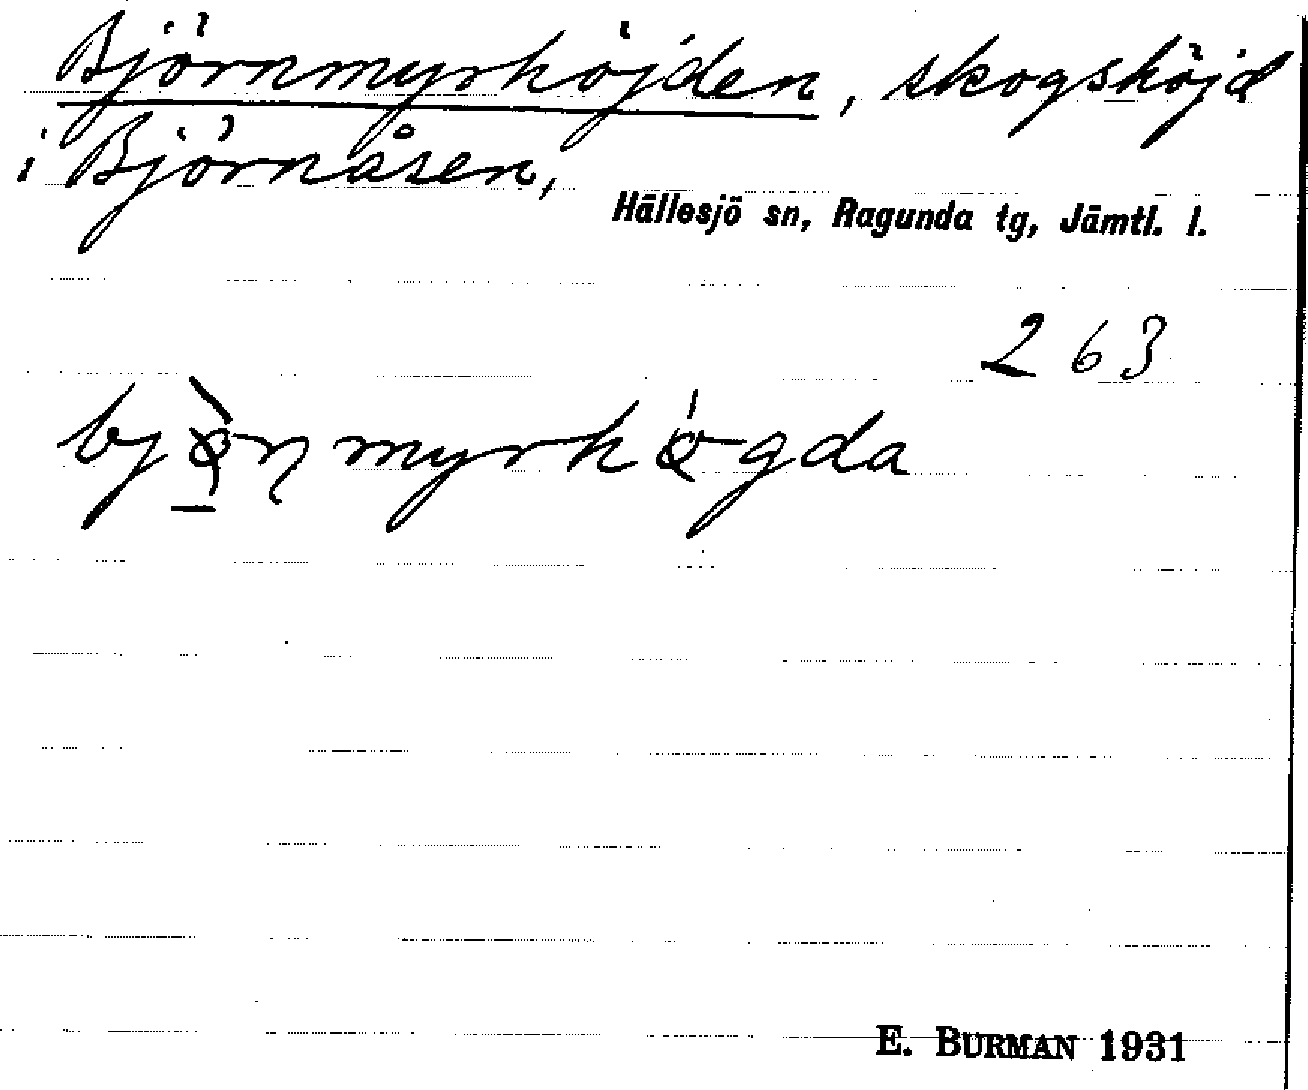 Björnmyrhöjden, skogshöjd
i Björnåsen,
Hällesjö sn, Ragunda tg, Jämtl. l.
263
E. BURMAN 1931